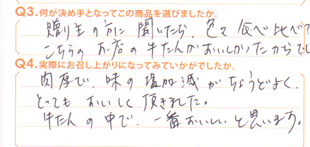 Q3.何が決め手となってこの商品を選びましたか。
贈り主の方に聞いたら、色々食べ比べて
こちらのお店の牛たんがおいしかったからでし
Q4.実際にお召し上がりになってみていかがでしたか。
肉厚で、味の塩加減がちょうどよく、
とってもおいしく頂きました。
牛たんの中で、一番おいしいと思います。